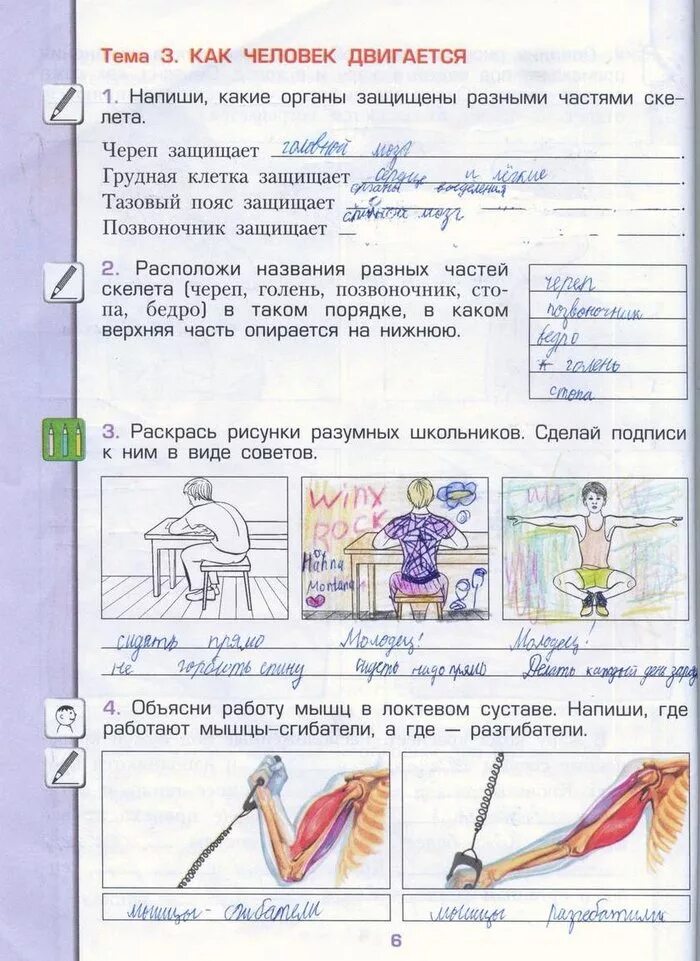 Тема 3. КАК ЧЕЛОВЕК ДВИГАЕТСЯ
1. Напиши, какие органы защищены разными частями ске-
лета.
Череп защищает головной мозг.
Грудная клетка защищает сердце и лёгкие.
Тазовый пояс защищает органы выделения.
Позвоночник защищает спинной мозг.
2. Расположи названия разных частей
скелета (череп, голень, позвоночник, сто-
па, бедро) в таком порядке, в каком
верхняя часть опирается на нижнюю.
череп
позвоночник
бедро
голень
стопа
3. Раскрась рисунки разумных школьников. Сделай подписи
к ним в виде советов.
Winx
ROCK
Hanna
Montana
сидять прямо
не горбить спину
Молодец!
Сидеть надо прямо
Молодец!
Делать каждый день заряд
4. Объясни работу мышц в локтевом суставе. Напиши, где
работают мышцы-сгибатели, а где — разгибатели.
мышцы - сгибатели
мышцы разгебатили
6